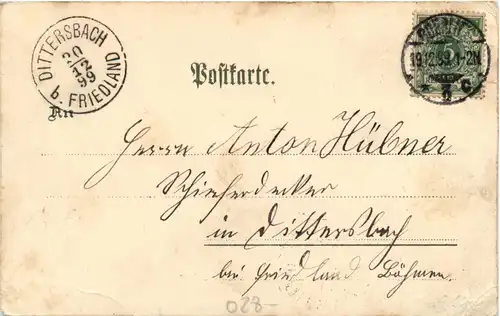 DITTERSBACH
20
12
99
b. FRIEDLAND
19.12.99. 1-2N
5
* 5 c.
Postkarte.
An
Herrn Anton Hübner
Schieferdecker
in Dittersbach
bei Friedland Böhmen.
028-